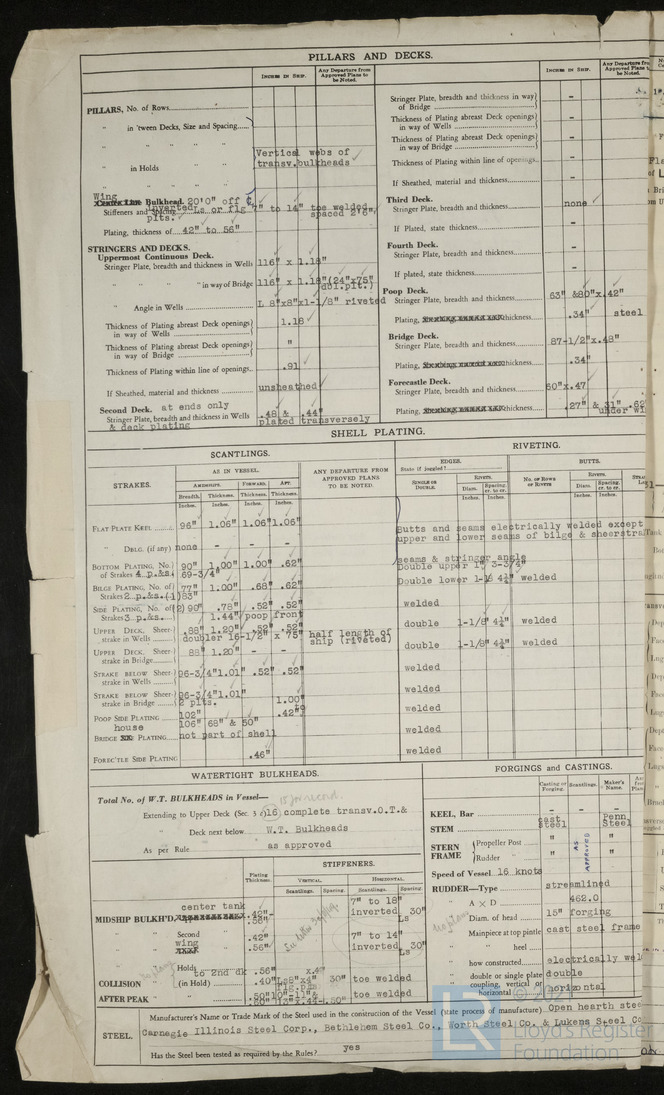 PILLARS AND DECKS.
INCHES IN SHIP.
Any Departure from Approved Plans to be Noted.
PILLARS, No. of Rows
" in 'tween Decks, Size and Spacing
" " " "
" in Holds " "
Vertical webs of
transv.bulkheads
Wing
Centre Line Bulkhead. 20'0" off
Stiffeners and Spacing inverted Ls or flg 7" to 14" toe welded spaced 2'8",
plts.
Plating, thickness of 42" to 56"
STRINGERS AND DECKS.
Uppermost Continuous Deck.
Stringer Plate, breadth and thickness in Wells 116" x 1.18"
" " " in way of Bridge 116" x 1.18" (24"x75" dbl.plt.)
" Angle in Wells L 8"x8"x1-1/8" riveted
Thickness of Plating abreast Deck openings in way of Wells 1.18
Thickness of Plating abreast Deck openings in way of Bridge "
Thickness of Plating within line of openings .91
If Sheathed, material and thickness unsheathed
Second Deck. at ends only
Stringer Plate, breadth and thickness in Wells .48 & .44"
& deck plating plated transversely
INCHES IN SHIP.
Any Departure from Approved Plans to be Noted.
Stringer Plate, breadth and thickness in way of Bridge -
Thickness of Plating abreast Deck openings in way of Wells -
Thickness of Plating abreast Deck openings in way of Bridge -
Thickness of Plating within line of openings -
If Sheathed, material and thickness -
Third Deck.
Stringer Plate, breadth and thickness none
If Plated, state thickness -
Fourth Deck.
Stringer Plate, breadth and thickness -
If plated, state thickness -
Poop Deck.
Stringer Plate, breadth and thickness 63" &80"x.42"
Plating, thickness .34" steel
Bridge Deck.
Stringer Plate, breadth and thickness 87-1/2"x.48"
Plating, thickness .34"
Forecastle Deck.
Stringer Plate, breadth and thickness 60"x.47
Plating, thickness .27" & 31" .62
under wi
SHELL PLATING.
SCANTLINGS.
RIVETING.
STRAKES.
AS IN VESSEL.
AMIDSHIPS. FORWARD. AFT.
Breadth. Thickness. Thickness. Thickness.
Inches. Inches. Inches. Inches.
ANY DEPARTURE FROM APPROVED PLANS TO BE NOTED.
EDGES.
State if joggled?
SINGLE OR DOUBLE.
RIVETS.
Diam. Spacing cr. to cr.
Inches. Inches.
BUTTS.
NO. OF ROWS OF RIVETS
RIVETS.
Diam. Spacing cr. to cr.
Inches. Inches.
FLAT PLATE KEEL 96" 1.06" 1.06" 1.06"
Butts and seams electrically welded except
upper and lower seams of bilge & sheerstra
" DBLG. (if any) none - - -
seams & stringer angle
BOTTOM PLATING, No. of Strakes 4 p.&s. 90" 1.00" 1.00" .62"
69-3/4"
Double upper 1" 3-3/4"
BILGE PLATING, No. of Strakes 2 p.&s. (1) 77" 1.00" .68" .62"
83"
Double lower 1-1/8 4¾" welded
SIDE PLATING, No. of Strakes 3 p.&s. (2) 90" .78" .52" .52" welded
1.44" poop front
UPPER DECK, Sheerstrake in Wells .88" 1.20" .52" .52" double 1-1/8" 4¾" welded
doubler 16-1/2" x 75" half length of ship (riveted)
UPPER DECK, Sheerstrake in Bridge 88" 1.20" - - double 1-1/8" 4¾" welded
STRAKE BELOW Sheerstrake in Wells 96-3/4" 1.01" .52" .52" welded
STRAKE BELOW Sheerstrake in Bridge 96-3/4" 1.01" welded
2 plts. 1.00" to
POOP SIDE PLATING 102" .42" welded
house 106" 68" & 50"
BRIDGE PLATING not part of shell welded
FOREC'TLE SIDE PLATING .46" welded
WATERTIGHT BULKHEADS.
Total No. of W.T. BULKHEADS in Vessel—
Extending to Upper Deck (Sec. 3 c) 16 complete transv.O.T.&
" Deck next below W.T. Bulkheads
As per Rule as approved
Plating Thickness.
STIFFENERS.
VERTICAL. HORIZONTAL.
Scantlings. Spacing. Scantlings. Spacing.
center tank
MIDSHIP BULKH'D, .42"- 7" to 18" inverted Ls 30"
" Second .42" 7" to 14"
wing .56" inverted Ls 30"
COLLISION " Hold to 2nd dk .56" x.4"
(in Hold) .40" Ls8"x4" 30" toe welded
AFTER PEAK " toe welded
FORGINGS and CASTINGS.
Casting or Forging. Scantlings. Maker's Name.
KEEL, Bar - - -
STEM cast steel Penn Steel
STERN FRAME Propeller Post " AS APPROVED "
Rudder " " "
Speed of Vessel 16 knots
RUDDER—Type streamlined
" A X D 462.0
" Diam. of head 15" forging
" Mainpiece at top pintle cast steel frame
" " heel "
" how constructed electrically wel
" double or single plate double
" coupling, vertical or horizontal horizontal
STEEL.
Manufacturer's Name or Trade Mark of the Steel used in the construction of the Vessel (state process of manufacture) Open hearth stee
Carnegie Illinois Steel Corp., Bethlehem Steel Co., Worth Steel Co. & Lukens Steel Co
Has the Steel been tested as required by the Rules? yes
LR
Lloyd's Register
Foundation